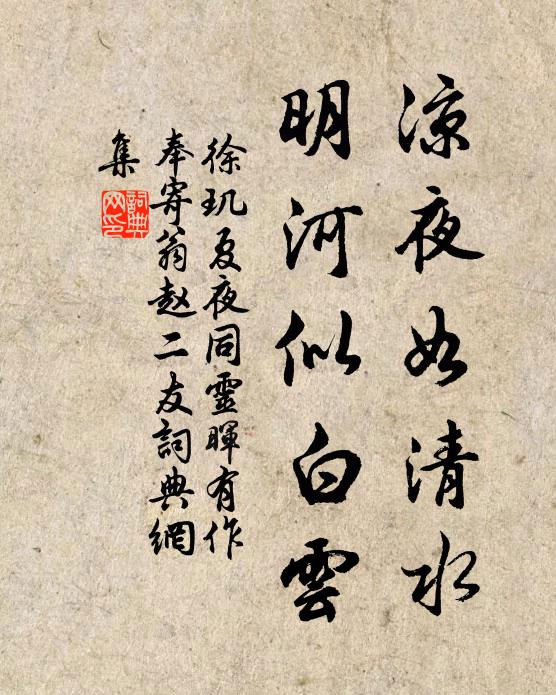 凉夜如清水
明河似白雲
徐玑夏夜同靈暉有作
奉寄翁赵二友詞典網
集
詞典
网印